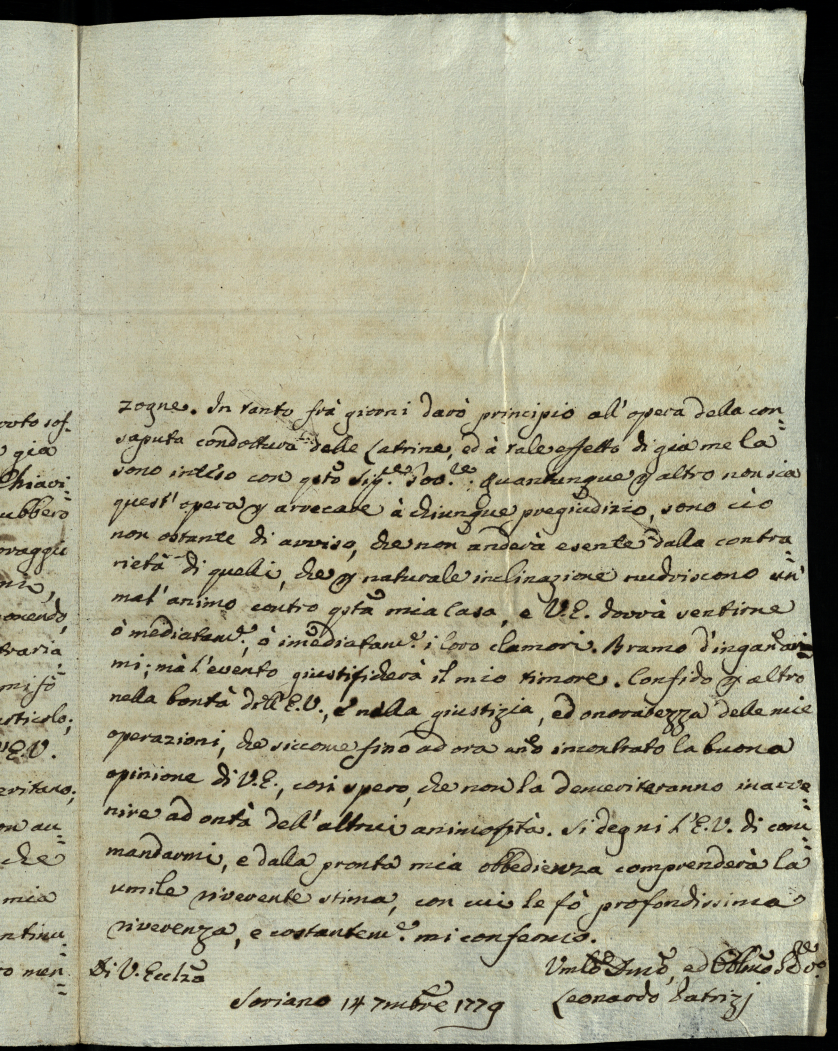 ovto sof-
già
Chiavi=
ubbero
oraggu
onendo,
traria
mi fò
articolo;
V.E.V.
eritano;
on au=
che
mia
ntinu=
to men=
zogne. In tanto frà giorni darò principio all'opera della con=
saputa condottura delle Latrine, ed à tale effetto di già me la
sono intiso con qsto Sig.re Gov.re: quantunque p altro non sia
quest'opera p arrecare à chiunque pregiudizio, sono ciò
non ostante di avviso, che non anderà esente dalla contra=
rietà di quelli, che p naturale inclinazione nudriscono un'
mal'animo contro qsta mia Casa, e V.E. dovrà sentirne
ò mediatam.e, ò imediatam.e i loro clamori. Bramo d'ingañar=
mi; mà l'evento giustificherà il mio timore. Confido p altro
nella bontà dell'E.V., e nella giustizia, ed onoratezza delle mie
operazioni, che siccome fino ad ora ano incontrato la buona
opinione di V.E., così spero, che non la demeriteranno in avve=
nire ad ontà dell'altrui animosità. Si degni l'E.V. di com=
mandarmi, e dalla pronta mia obbedienza comprenderà la
umile riverente stima, con cui le fò profondissima
riverenza, e costantem.e mi confermo.
Di V. Ecclza
Umilo Dmo, ed Obbmo Se.vo
Soriano 14 7mbre 1779
Leonardo Patrizj